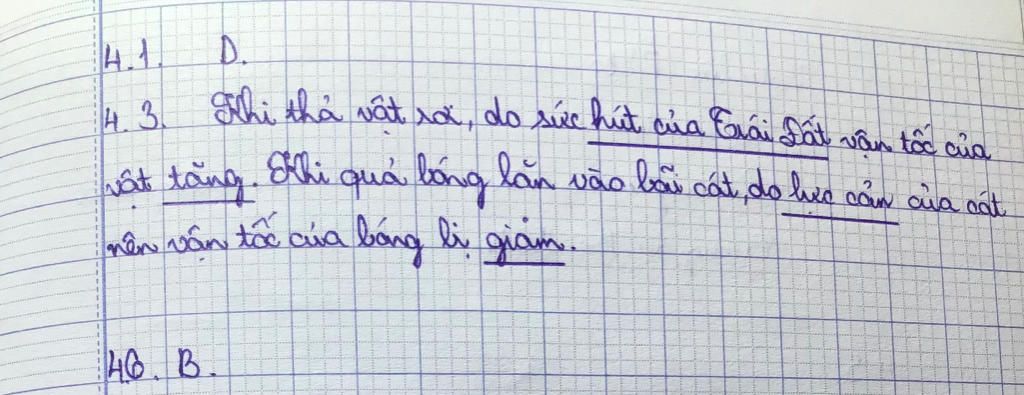 4.1. D.
4.3. Khi thả vật rơi, do sức hút của Trái Đất vận tốc của
vật tăng. Khi quả bóng lăn vào bãi cát, do lực cản của cát
nên vận tốc của bóng bị giảm.
4.6. B.